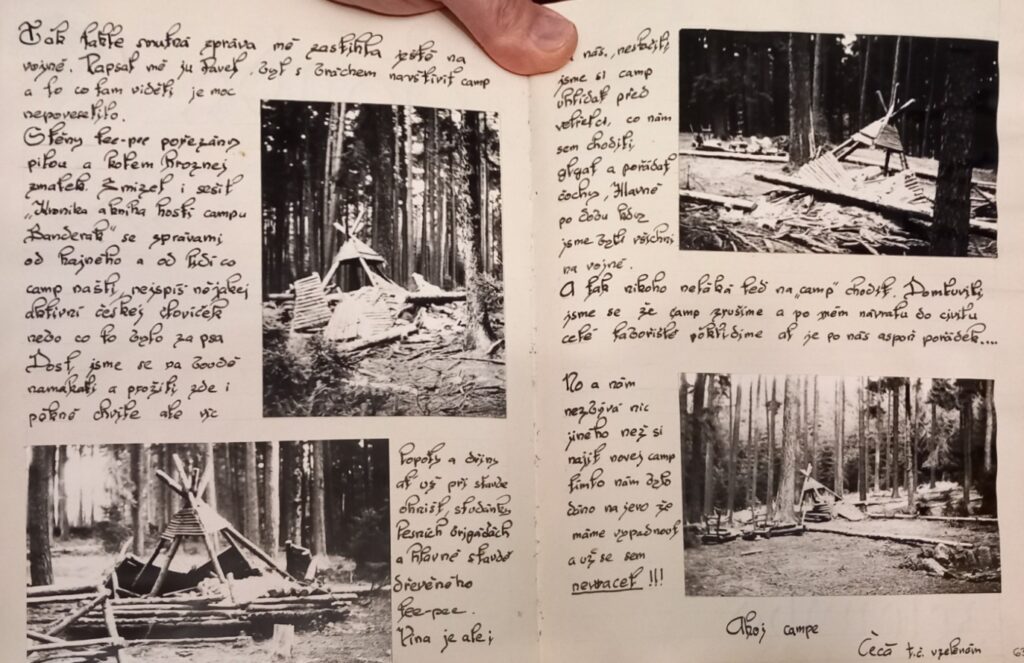 Tak takle smutná zpráva mě zastihla ještě na
vojně. Napsal mě ju Pavel, byl s Bráchem navštívit camp
a to co tam viděli je moc
nepovesetilo.
Stěny tee-pee pořezány
pilou a kolem hroznej
zmatek. Zmizel i sešit
„Kronika a kniha hostí campu
Banderak" se zprávami
od hajného a od lidí co
camp našli, nejspíš nějakej
aktivní českej človíček
nebo co to bylo za psa
Dost jsme se na boudě
namakali a prožili zde i
pěkné chvíle ale víc
lopoty a dřiny
ať už při stavbě
ohnišť, studánky
lesních brigádách
a hlavně stavbě
dřevěného
tee-pee.
Vina je alej
náš, nestačili
jsme si camp
uhlídat před
vetřelci, co nám
sem chodili
and pořádat
čochny, Hlavně
po dobu kdy
jsme byli všichni
na vojně.
A tak nikoho neláká teď na „camp" chodit. Domluvili
jsme se že camp zrušíme a po mém návratu do civilu
celé tábořiště poklidíme ať je po nás aspoň pořádek....
No a nám
nezbývá nic
jiného než si
najít novej camp
tímto nám bylo
dáno na jevo že
máme vypadnout
a už se sem
nevracet !!!
Ahoj campe
Čěčá t.č. v zeleném